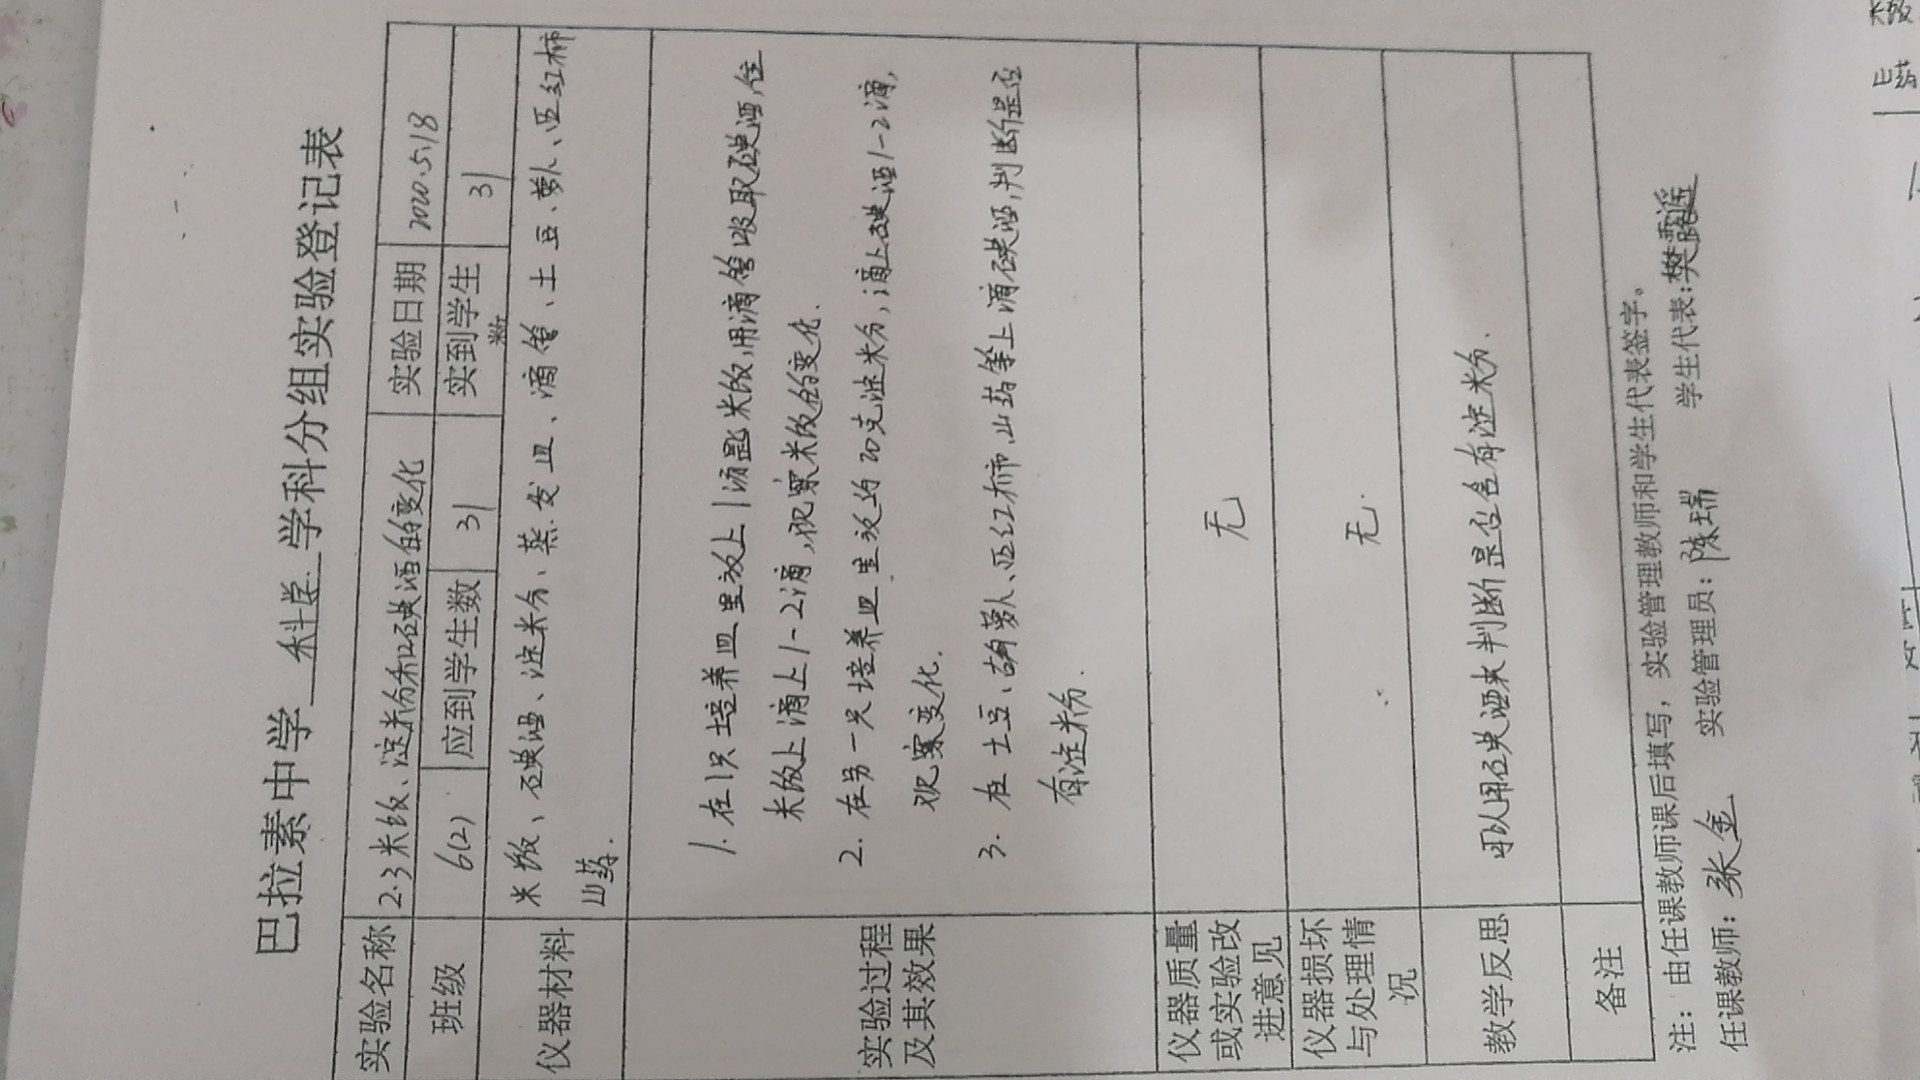 巴拉素中学 科学 学科分组实验登记表
实验名称 2.3米饭、淀粉和碘酒的变化 实验日期 2020.5.18
班级 6(2) 应到学生数 31 实到学生数 31
仪器材料 米饭、碘酒、淀粉、蒸发皿、滴管、土豆、萝卜、西红柿
山药.
实验过程及其效果
1. 在1只培养皿里放上1汤匙米饭,用滴管吸取碘酒,往
米饭上滴上1-2滴,观察米饭的变化.
2. 在另一只培养皿里放约20克淀粉,滴上碘酒1-2滴,
观察变化.
3. 在土豆、胡萝卜、西红柿、山药等上滴碘酒,判断是否
有淀粉.
仪器质量或实验改进意见 无
仪器损坏与处理情况 无.
教学反思 可以用碘酒来判断是否含有淀粉.
备注
注：由任课教师课后填写，实验管理教师和学生代表签字。
任课教师：张金 实验管理员：陈瑞 学生代表:樊露遥
米饭
山药